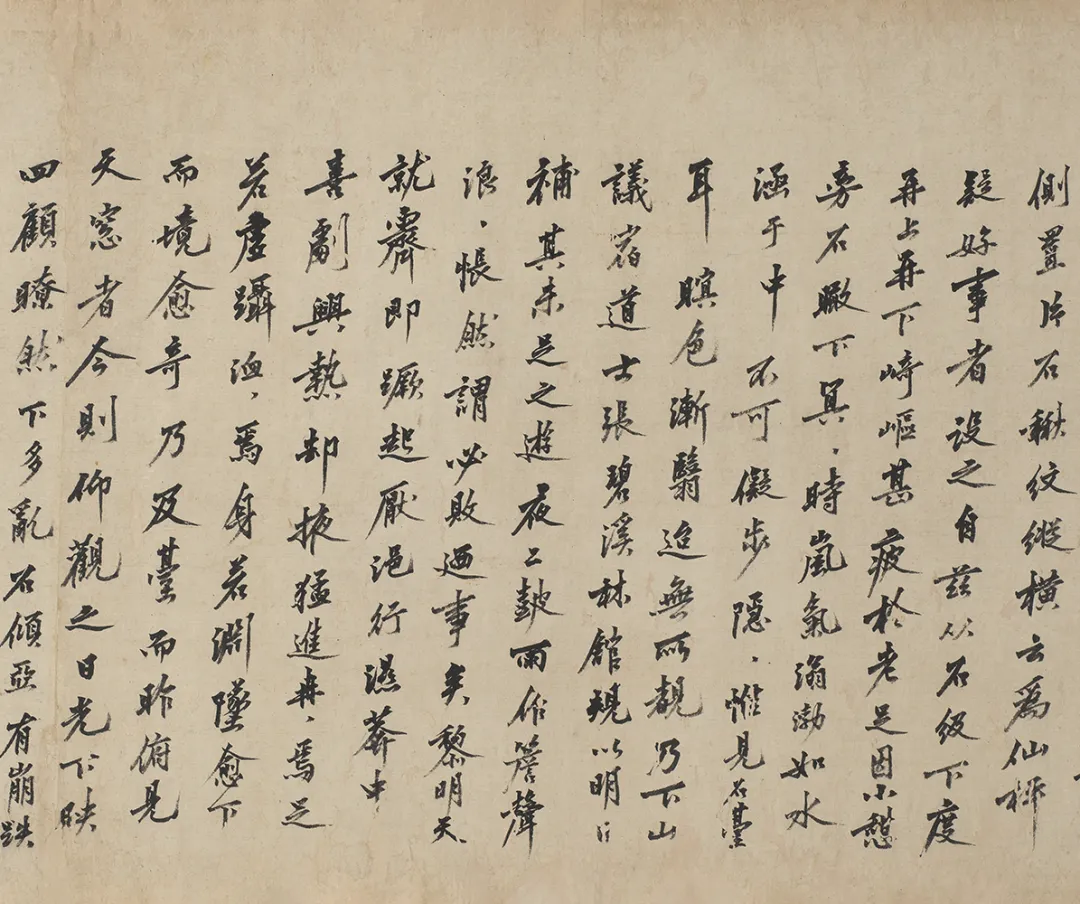 側置片石楸紋縱橫云為仙枰
疑好事者設之自茲從石級下度
再上再下崎嶇甚疲於老足因小憩
旁石瞰下冥〻時嵐氣滃渤如水
涵于中不可儗步隱〻惟見石臺
耳暝色漸翳迨無所覩乃下山
議宿道士張碧溪林館規以明日
補其未足之遊夜二鼓雨作簷聲
浪〻悵然謂必敗迺事矣黎明天
就霽即蹶起厭浥行濕莽中
喜劇興熱却掖猛進冉〻焉足
若虛躡洫〻焉身若淵墜愈下
而境愈奇乃及臺而昨俯見
天窓者今則仰觀之日光下映
四顧瞭然下多亂石傾亞有崩跌